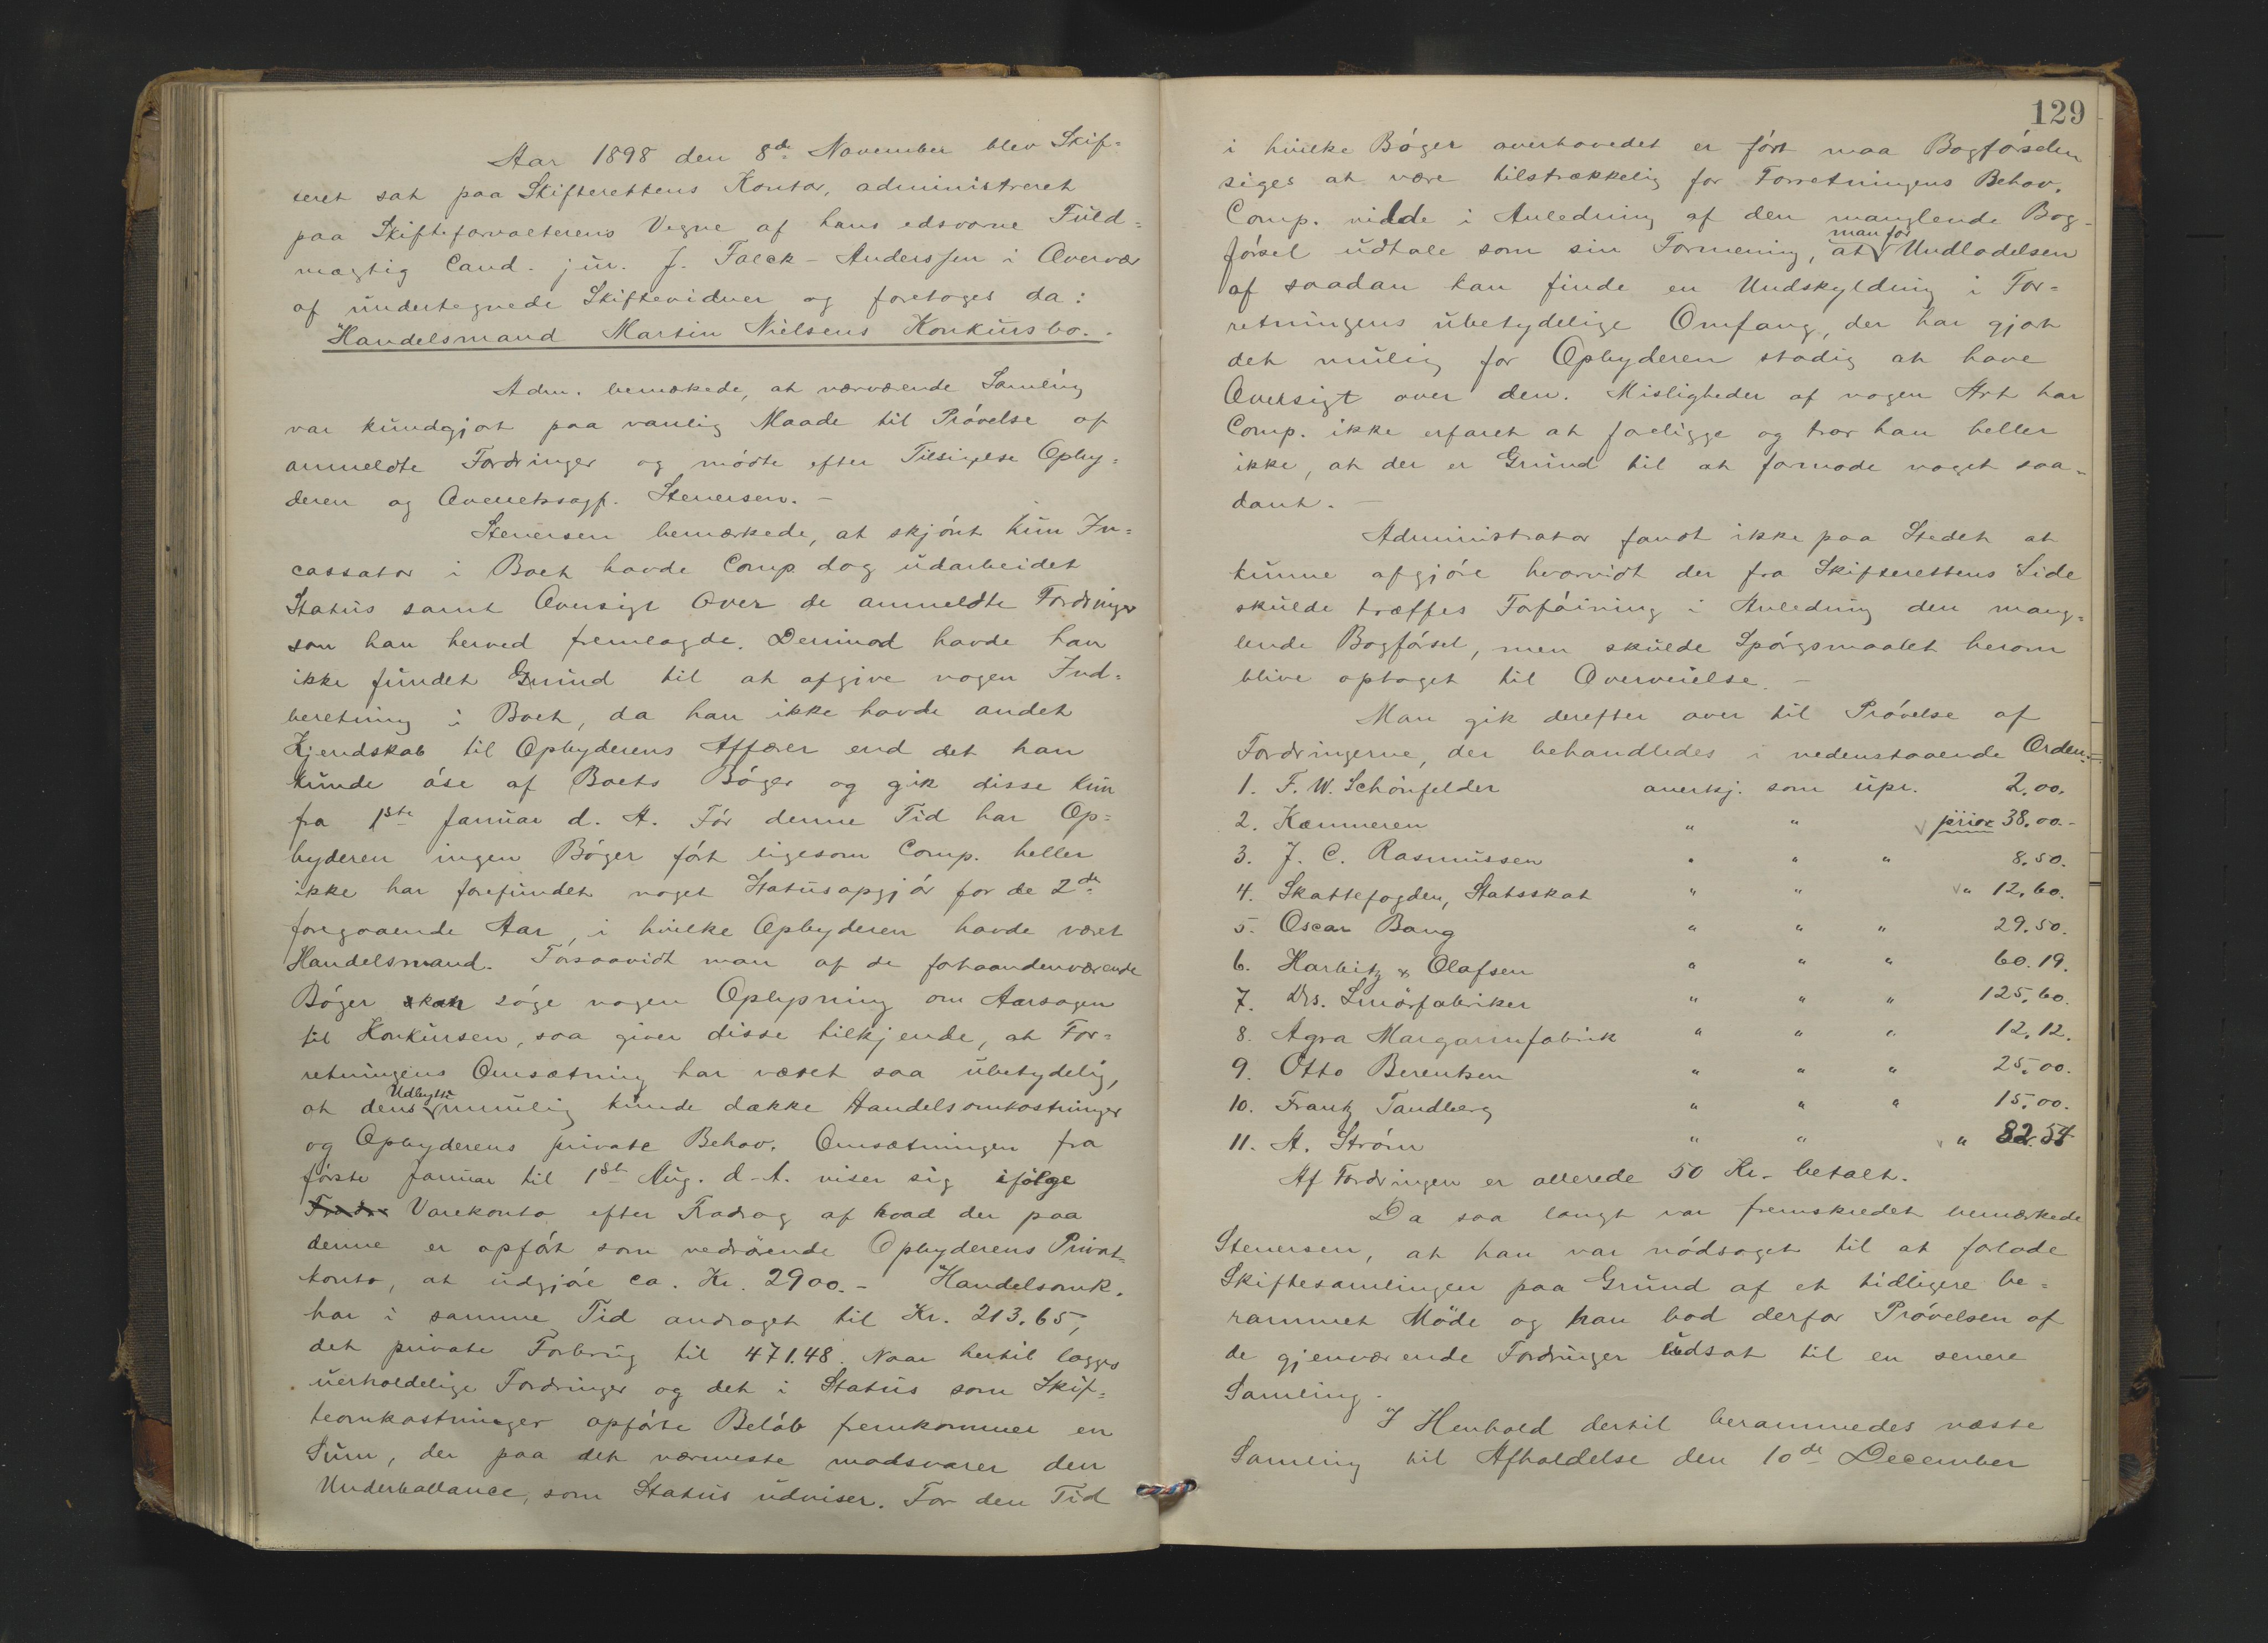 Aar 1898 den 8de November blev Skif-
teret sat paa Skifterettens Kontor, administreret
paa Skifteforvalterens Vegne af hans edsvorne Fuld-
mægtig Cand. jur. J. Falck-Anderssen i Overvær
af undertegnede Skiftevidner og foretoges da:
Handelsmand Martin Nielsens Konkursbo.
Adm. bemærkede, at nærværende Samling
var kundgjort paa vanlig Maade til Prøvelse af
anmeldte Fordringer og mødte efter Tilsigelse Opby-
deren og Overretssagf. Stenersen. –
Stenersen bemærkede, at skjønt kun In-
cassator i Boet havde Comp. dog udarbeidet
Status samt Oversigt over de anmeldte Fordringer
som han herved fremlagde. Derimod havde han
ikke fundet Grund til at afgive nogen Ind-
beretning i Boet, da han ikke havde andet
Kjendskab til Opbyderens Affærer end det han
kunde øse af Boets Bøger og gik disse kun
fra 1ste Januar d. A. Før denne Tid har Op-
byderen ingen Bøger ført ligesom Comp. heller
ikke har forefundet noget Statusopgjør for de 2de
foregaaende Aar, i hvilke Opbyderen havde været
Handelsmand. Forsaavidt man af de forhaandenværende
Bøger kan søge nogen Oplysning om Aarsagen
til Konkursen, saa giver disse tilkjende, at For-
retningens Omsætning har været saa ubetydelig,
at dens Udbytte umulig kunde dække Handelsomkostninger
og Opbyderens private Behov. Omsætningen fra
første Januar til 1ste Aug. d. A. viser sig ifølge
Varekonto efter Fradrag af hvad der paa
denne er opført som vedrørende Opbyderens Privat-
konto, at udgjøre ca. Kr. 2900.- Handelsomk.
har i samme Tid andraget til Kr. 213.65,
det private Forbrug til 471.48. Naar hertil lægges
uerholdelige Fordringer og det i Status som Skif-
teomkostninger opførte Beløb fremkommer en
Sum, der paa det nærmeste modsvarer den
Underballance, som Status udviser. For den Tid
129
i hvilke Bøger overhovedet er ført maa Bogførselen
siges at være tilstrækkelig for Forretningens Behov.
Comp. vilde i Anledning af den manglende Bog-
førsel udtale som sin Formening, at man for Undladelsen
af saadan kan finde en Undskyldning i For-
retningens ubetydelige Omfang, der har gjort
det mulig for Opbyderen stadig at have
Oversigt over den. Misligheder af nogen Art har
Comp. ikke erfaret at foreligge og tror han heller
ikke, at der er Grund til at formode noget saa-
dant. –
Administrator fandt ikke paa Stedet at
kunne afgjøre hvorvidt der fra Skifterettens Side
skulde træffes Forføining i Anledning den mang-
lende Bogførsel, men skulde Spørgsmaalet herom
blive optaget til Overveielse. –
Man gik derefter over til Prøvelse af
Fordringerne, der behandledes i nedenstaaende Orden:
1. F. W. Schönfelder anerkj. som upr. 2.00.
2. Kæmneren " " prior 38.00.-
3. J. C. Rasmussen " " " 8.50.
4. Skattefogden, Statsskat " " " 12.60.
5. Oscar Bang " " " 29.50.
6. Harbitz & Olafsen " " " 60.19.
7. Drs. Smørfabriker " " " 125.60.
8. Agra Margarinfabrik " " " 12.12.
9. Otto Berentsen " " " 25.00.
10. Frantz Tandberg " " " 15.00.
11. A. Strøm " " " 82.54
Af Fordringen er allerede 50 Kr. betalt.
Da saa langt var fremskredet bemærkede
Stenersen, at han var nødsaget til at forlade
Skiftesamlingen paa Grund af et tidligere be-
rammet Møde og han bad derfor Prøvelsen af
de gjenværende Fordringer udsat til en senere
Samling.
I Henhold dertil berammedes næste
Samling til Afholdelse den 10de December